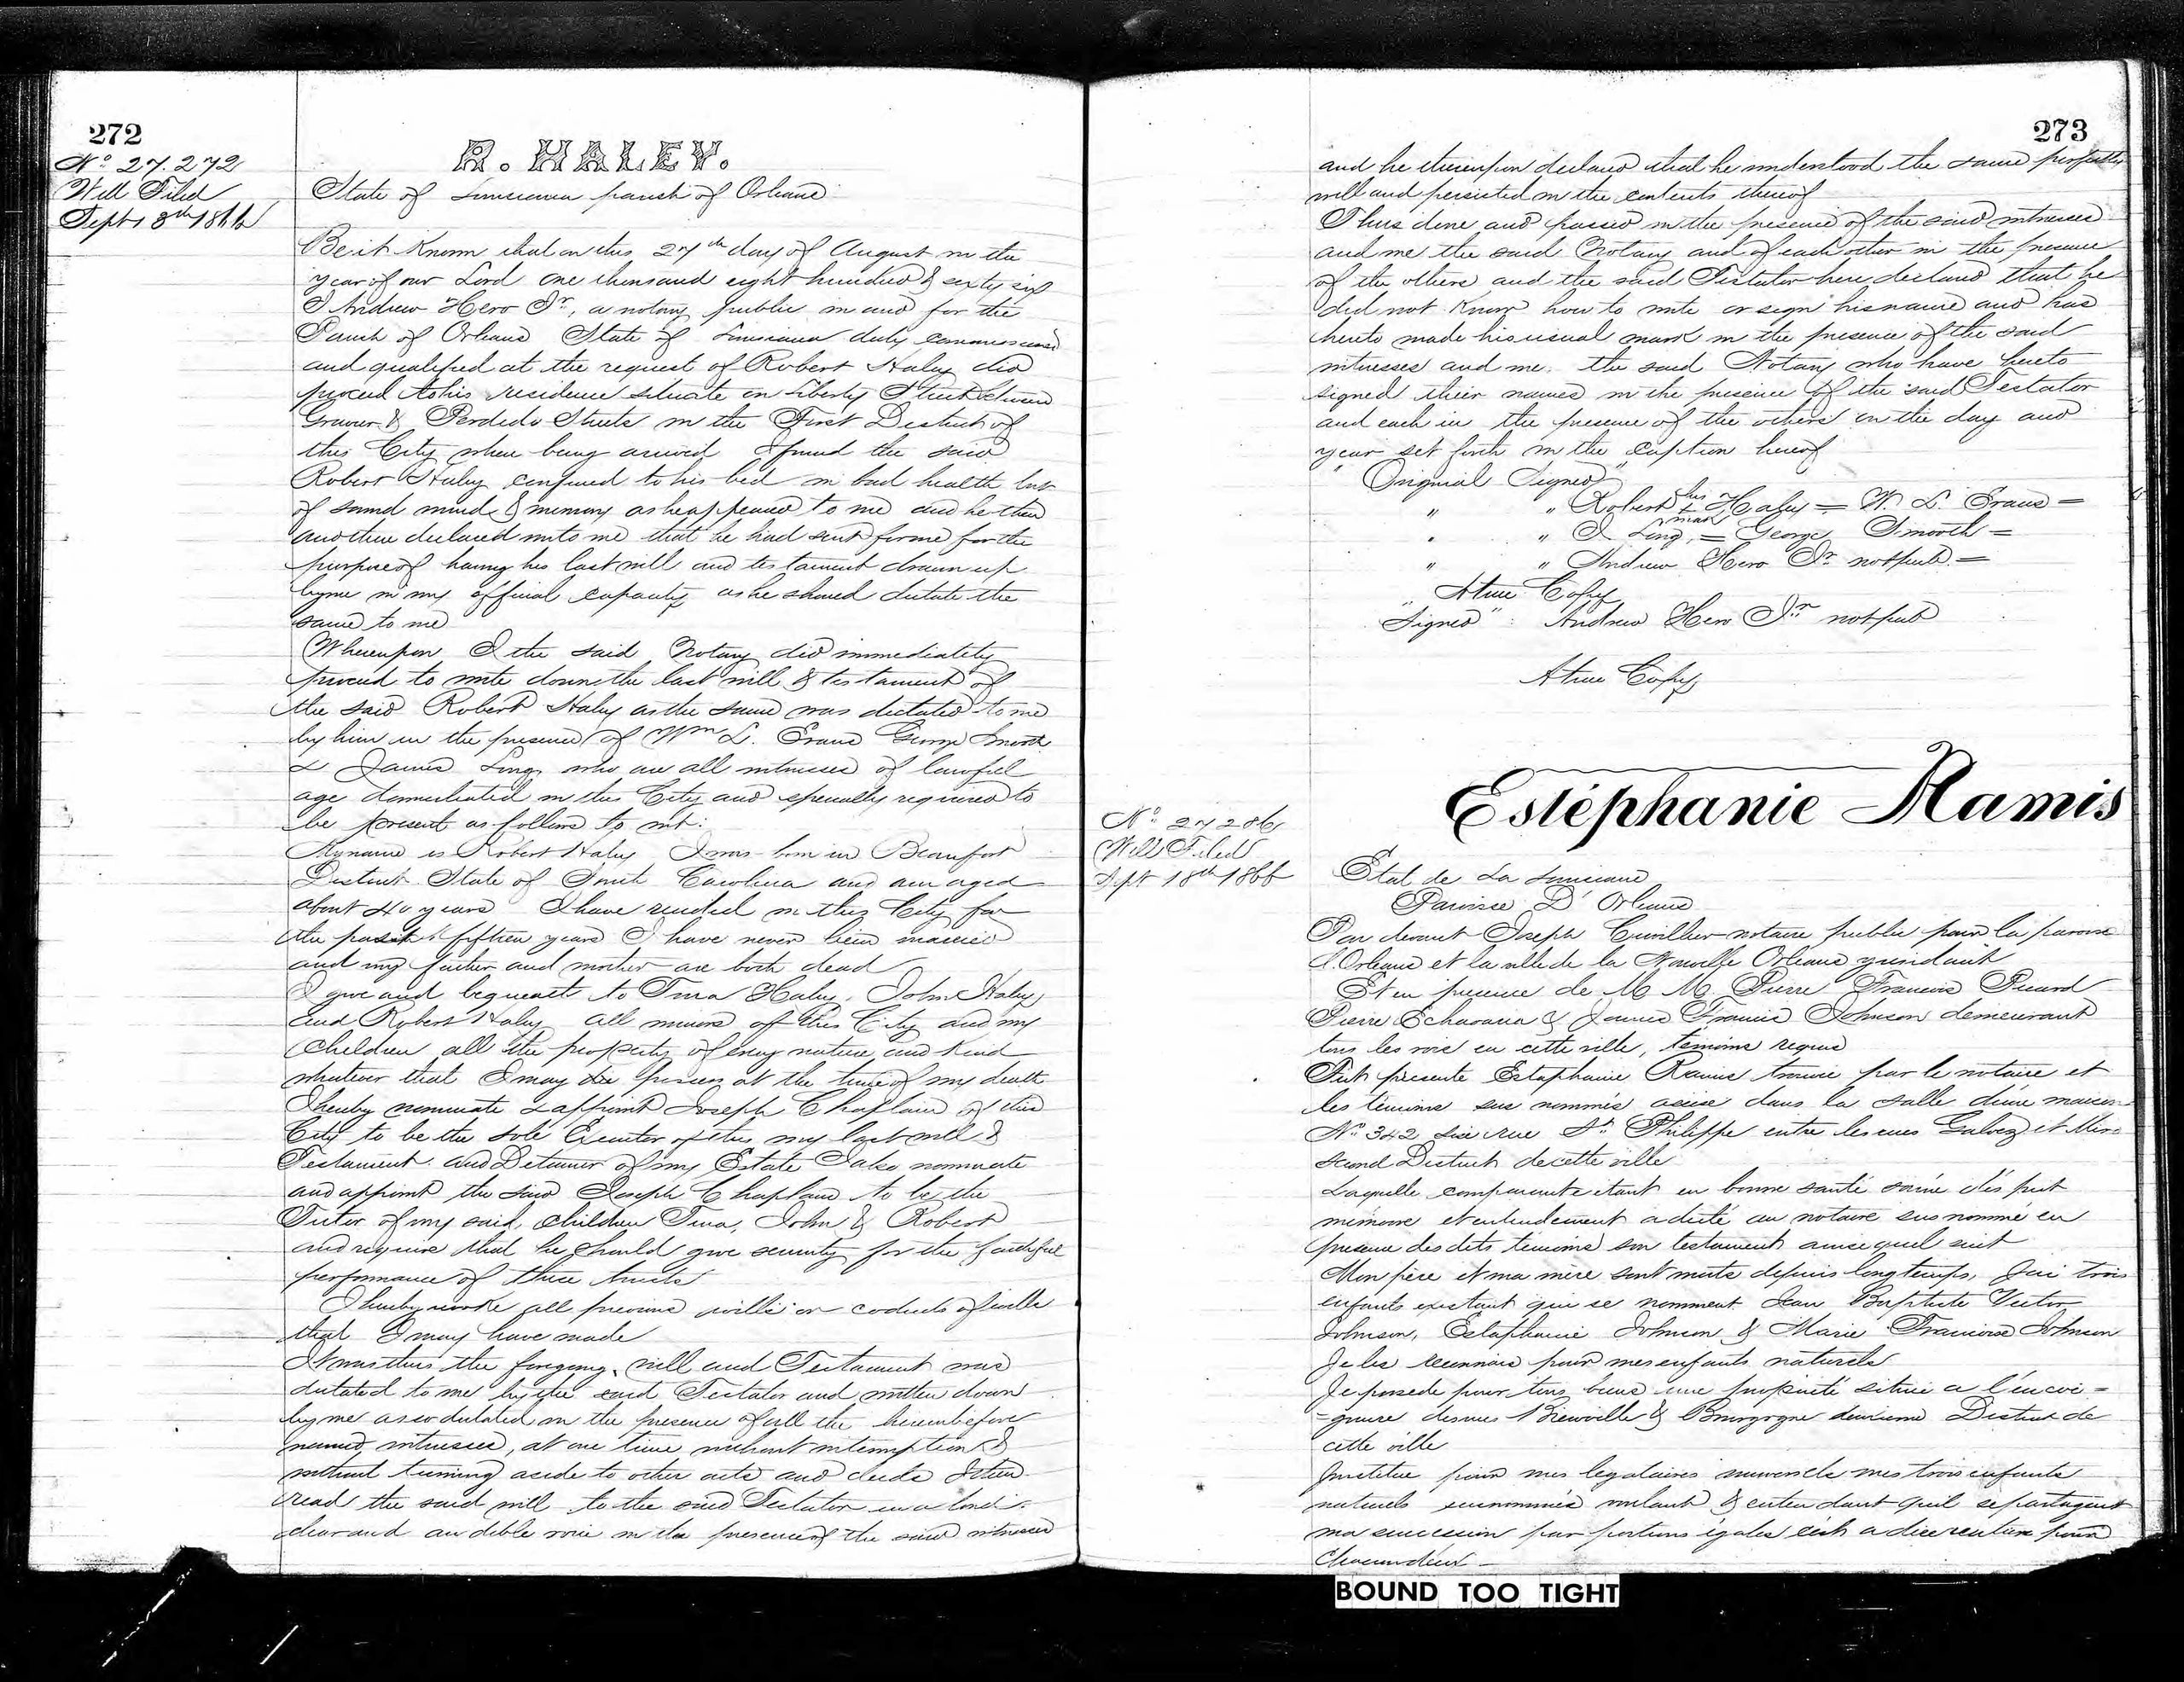 272
No. 27.272
Will Filed
Sept 8th 1866
R. HALEY.
State of Louisiana parish of Orleans
Be it Known that on this 27th day of August in the
year of our Lord one thousand eight hundred & sixty six
I Andrew Hero Jr., a notary public in and for the
Parish of Orleans State of Louisiana duly commissioned
and qualified at the request of Robert Haley did
proceed to his residence situate on Liberty Street between
Gravier & Perdido Streets in the First District of
this City where being arrived I found the said
Robert Haley confined to his bed in bad health but
of sound mind & memory as he appeared to me and he then
and there declared unto me that he had sent for me for the
purpose of having his last will and testament drawn up
by me in my official capacity as he should dictate the
same to me
Whereupon I the said Notary did immediately
proceed to write down the last will & testament of
the said Robert Haley as the same was dictated to me
by him in the presence of Wm L. Evans George Smooth
& James Ling who are all witnesses of lawful
age domiciliated in this City and specially required to
be present as follows to wit:
My name is Robert Haley I was born in Beaufort
District State of South Carolina and am aged
about 40 years I have resided in this City for
the past fifteen years I have never been married
and my father and mother are both dead
I give and bequeath to Tina Haley, John Haley,
and Robert Haley all minors of this City and my
Children all the property of every nature and Kind
whatever that I may die possess at the time of my death
I hereby nominate & appoint Joseph Chaplain of this
City to be the sole Executor of this my last will &
Testament and Detainer of my Estate I also nominate
and appoint the said Joseph Chaplain to be the
Tutor of my said children Tina, John & Robert
and require that he should give security for the faithful
performance of these trusts
I hereby revoke all previous wills or codicils of wills
that I may have made
It was thus the foregoing will and Testament was
dictated to me by the said Testator and written down
by me as so dictated in the presence of all the hereinbefore
named witnesses, at one time without interruption &
without turning aside to other acts and deeds I then
read the said will to the said Testator in a loud
clear and audible voice in the presence of the said witnesses
273
and he thereupon declared that he understood the same perfectly
well and persisted in the contents thereof
Thus done and passed in the presence of the said witnesses
and me the said Notary and of each other in the presence
of the others and the said Testator here declared that he
did not Know how to write or sign his name and has
hereto made his usual mark in the presence of the said
witnesses and me the said Notary who have hereto
signed their names in the presence of the said Testator
and each in the presence of the others on the day and
year set forth in the caption hereof
"Original Signed"
" " Robert his + mark Haley = W. L. Evans =
" " J Ling = George Smooth =
" " Andrew Hero Jr not pub =
"A true Copy
Signed" Andrew Hero Jr. not pub
A true Copy
Estéphanie Ramis
No. 27286
Will Filed
Sept 18th 1866
État de La Louisiane
Paroisse D'Orleans
Par devant Joseph Cuvillier notaire public pour la paroisse
d'Orleans et la ville de la Nouvelle Orleans y résidant
Et en présence de M M. Pierre Francois Picard
Pierre Echavaria & James Francis Johnson demeurant
tous les trois en cette ville, témoins requis
Fut présente Estephanie Ramis trouvée par le notaire et
les témoins sus nommés assise dans la salle d'une maison
No. 342 sise rue St. Philippe entre les rues Galvez et Miro
second District de cette ville
Laquelle comparante étant en bonne santé saine d'esprit
mémoire et entendement a dicté au notaire sus nommé en
présence des dits témoins son testament ainsi quel suit
Mon père et ma mère sont morts depuis longtemps, J'ai trois
enfants existant qui se nomment Jean Baptiste Victor
Johnson, Estephanie Johnson & Marie Francoise Johnson
Je les reconnais pour mes enfants naturels
Je possede pour tous biens une propriété située a l'encoi=
=gnure des rues Bienville & Bourgogne deuxieme District de
cette ville
J'institue pour mes legataires universels mes trois enfants
naturels susnommés voulant & entendant quil se partagent
ma succession par portions égales cest a dire un tiers pour
chacun deux
BOUND TOO TIGHT